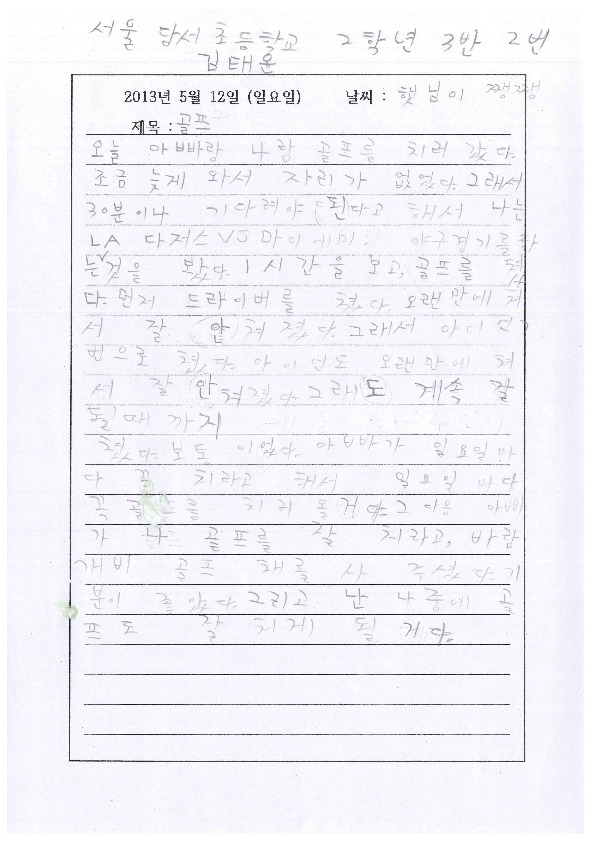 서울 답서초등학교 2학년 3반 2번
김태윤
2013년 5월 12일 (일요일) 날씨 : 햇님이 쨍쨍
제목 : 골프
오늘 아빠랑 나랑 골프를 치러 갔다.
조금 늦게 와서 자리가 없었다. 그래서
30분이나 기다려야 된다고 해서 나는
LA 다저스 VS 마이에미 야구경기를 하
는 것을 봤다. 1시간을 보고, 골프를 쳤
다. 먼저 드라이버를 쳤다. 오랜만에 쳐
서 잘 안 쳐졌다. 그래서 아이언
번으로 쳤다. 아이언도 오랜만에 쳐
서 잘 안 쳐졌다. 그래도 계속 잘
될 때까지
쳤다. 보통이었다. 아빠가 일요일마
다 꼭 치라고 해서 일요일마다
꼭 골프를 치러 올거다. 그 다음 아빠
가 나 골프를 잘 치라고, 바람
개비 골프채를 사 주셨다. 기
분이 좋았다. 그리고 난 나중에 골
프도 잘 치게 될 거다.